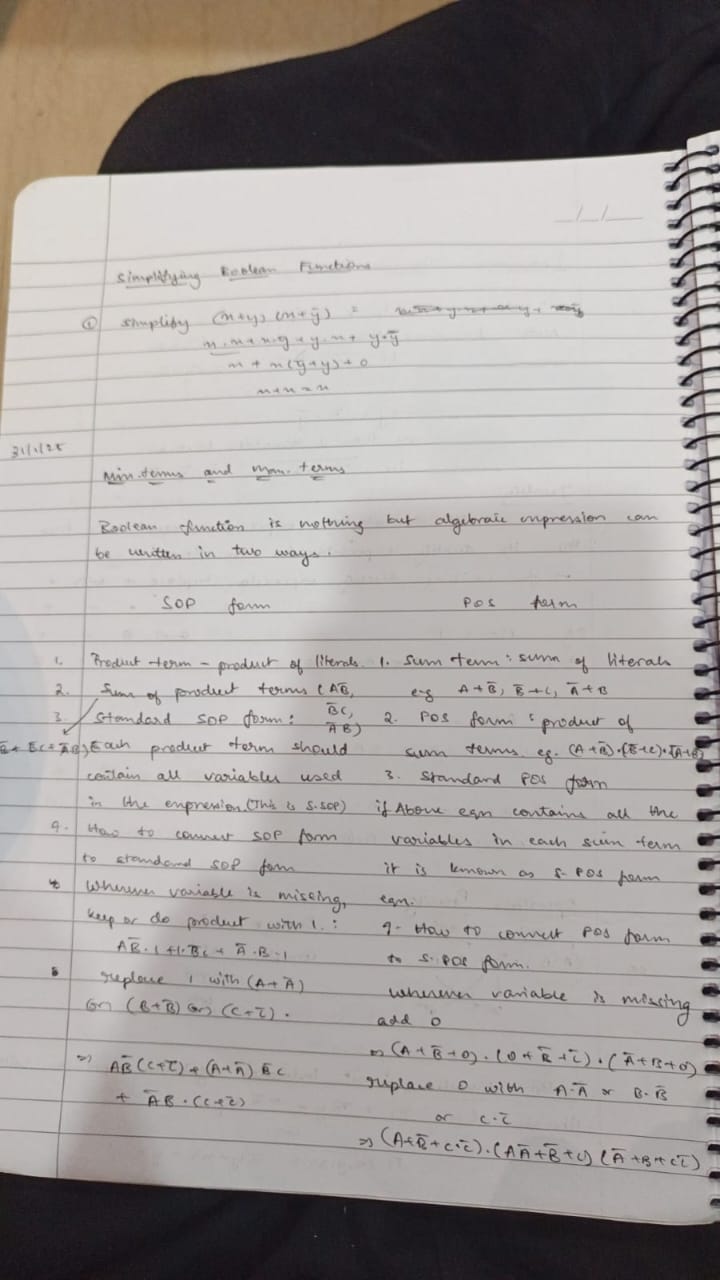 Simplifying Boolean Functions
① Simplify (x+y) (x+ȳ) =
x.x+x.ȳ+y.x+ y.ȳ
x + x(ȳ+y)+0
x+x=x
31/1/25
Min.terms and max.terms
Boolean function is nothing but algebraic expression can
be written in two ways.
SOP form
1. Product term - product of literals.
2. Sum of product terms (AB̄,
B̄C,
ĀB)
3. Standard SOP form:
B̄+ B̄C+ĀB) Each product term should
contain all variables used
in the expression.(This is S.SOP)
4. How to convert SOP form
to standard SOP form
Wherever variable is missing,
keep or do product with 1.:
AB̄.1+1.B̄C+Ā.B.1
replace 1 with (A+Ā)
(or) (B+B̄) (or) (C+C̄).
=> AB̄(C+C̄)+(A+Ā)B̄C
+ ĀB.(C+C̄)
POS form
1. Sum term: sum of literals
eg A+B̄, B̄+C, Ā+B
2. POS form: product of
sum terms. eg. (A+B̄).(B̄+C).(Ā+B)
3. Standard POS form
if Above eqn contains all the
variables in each sum term
it is known as S-POS form
eqn.
4. How to convert POS form
to S.POS form.
wherever variable is missing
add 0
=> (A+B̄+0).(0+B̄+C̄).(Ā+B+0)
replace 0 with A.Ā or B.B̄
or C.C̄
=> (A+B̄+C.C̄).(AĀ+B̄+C)(Ā+B+CC̄)